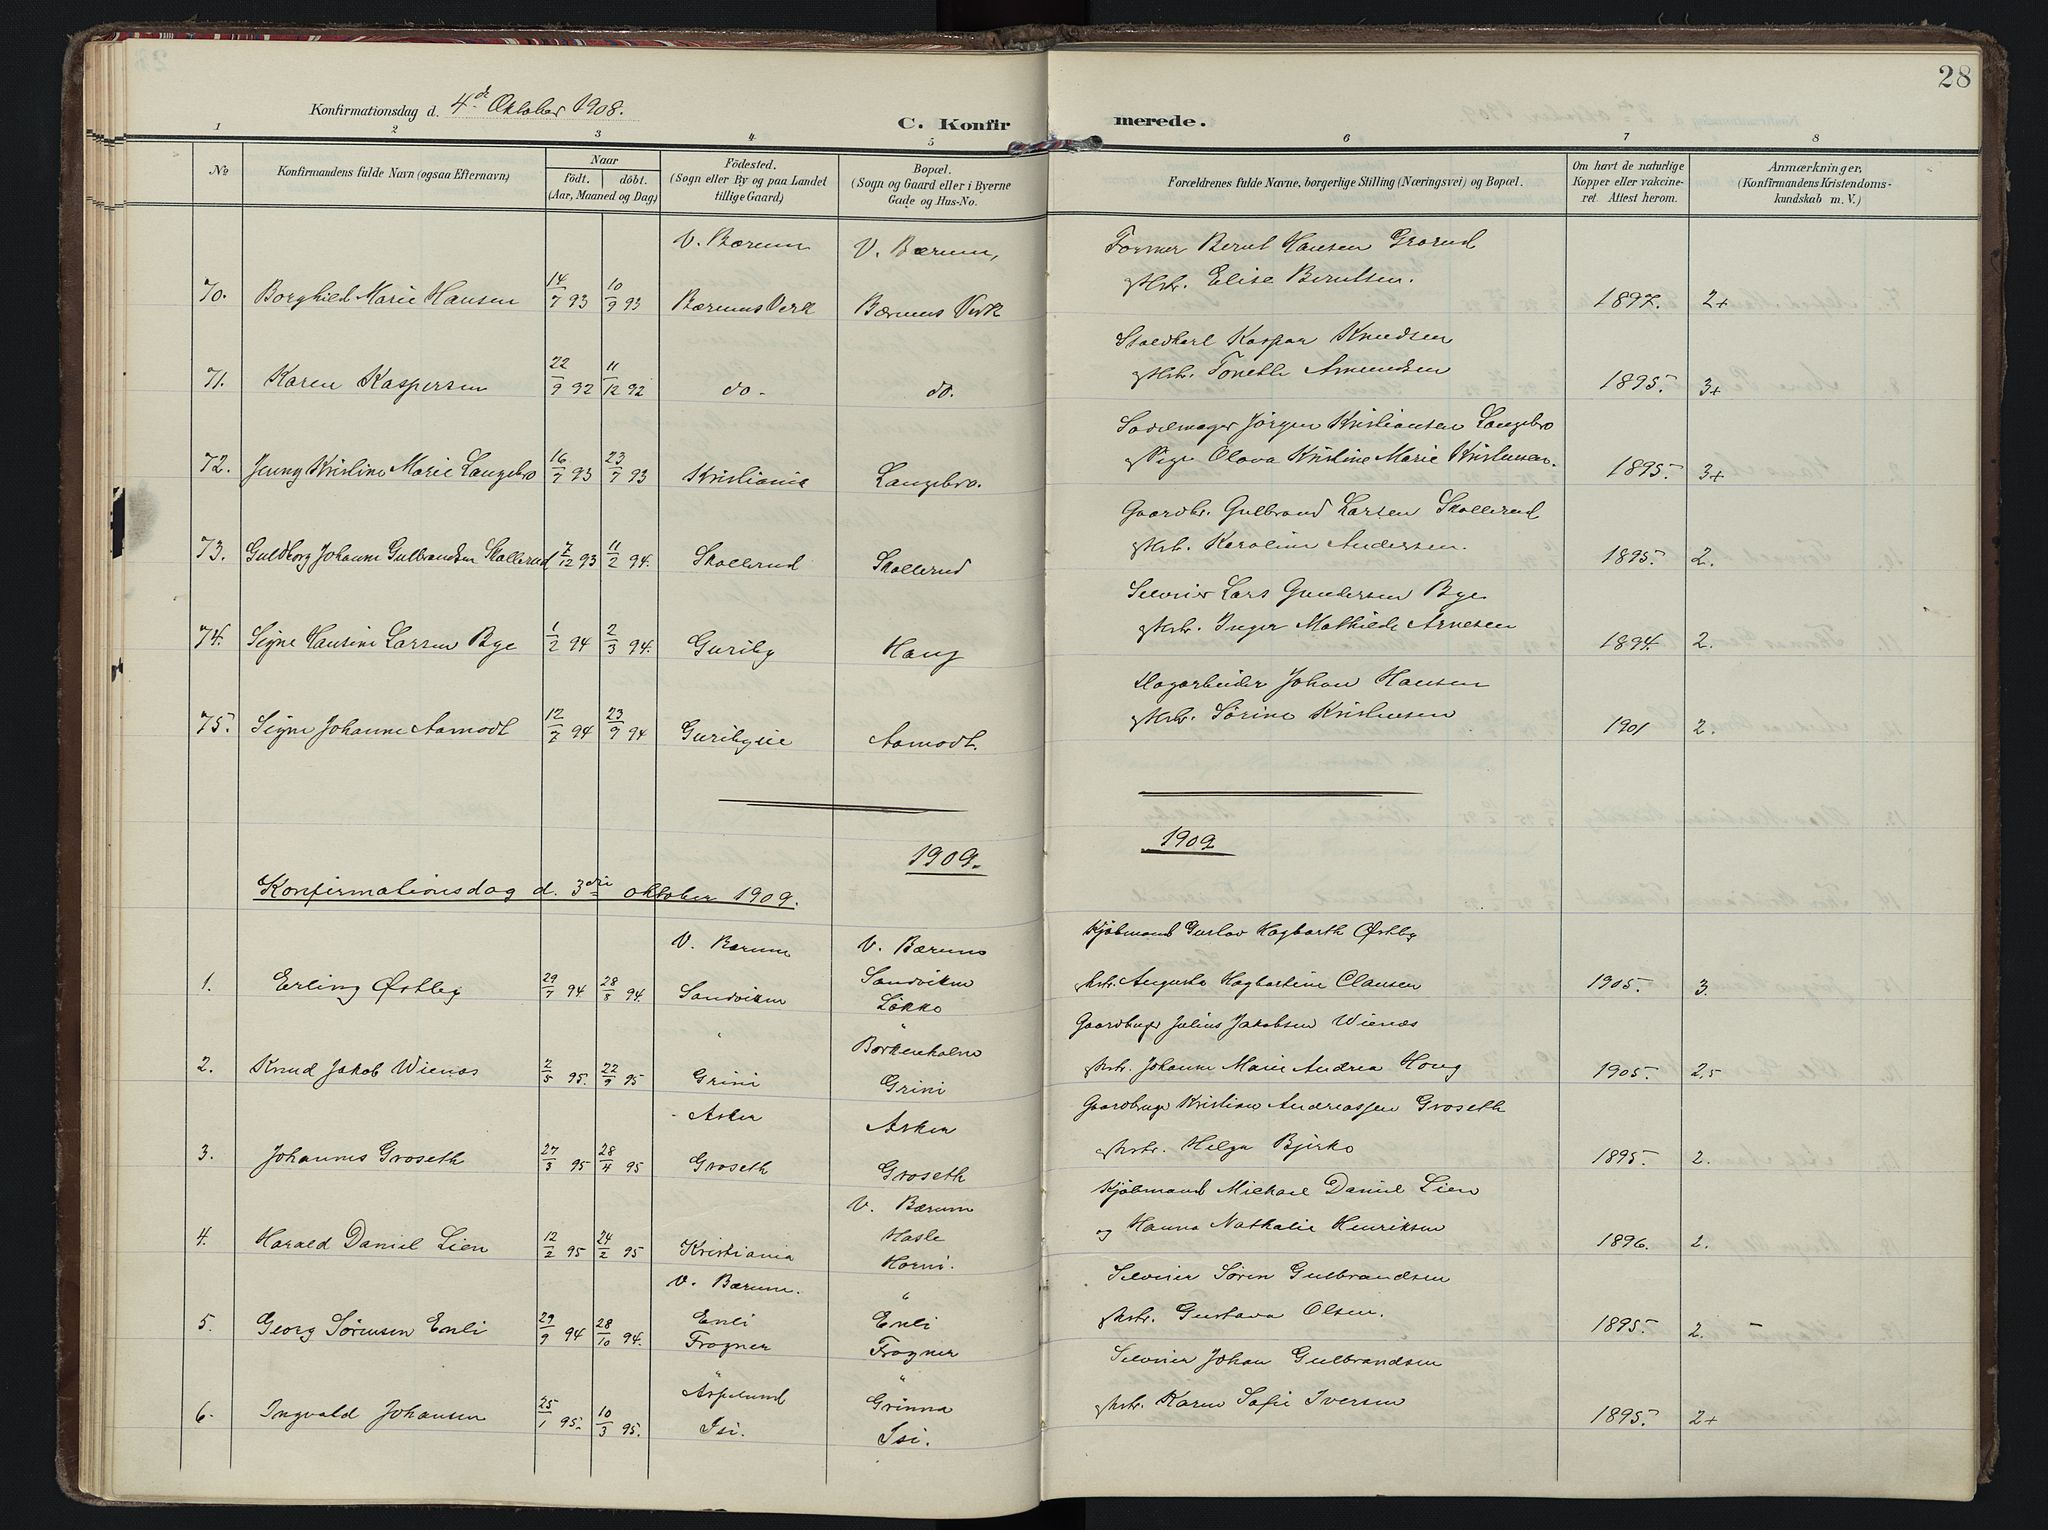 28
Konfirmationsdag d. 4de Oktober 1908.
C. Konfirmerede.
1 2 3 4 5 6 7 8
No
Konfirmandens fulde Navn (ogsaa Efternavn)
Naar
födt. döbt.
(Aar, Maaned og Dag)
Födested.
(Sogn eller By og paa Landet
tillige Gaard)
Bopæl.
(Sogn og Gaard eller i Byerne
Gade og Hus-No.
Forældrenes fulde Navne, borgerlige Stilling (Næringsvei) og Bopæl.
Om havt de naturlige
Kopper eller vakcine-
ret. Attest herom.
Anmærkninger,
(Konfirmandens Kristendoms-
kundskab m. V.)
V. Bærum V. Bærum, Former Bernt Hansen Grorud
70. Borghild Marie Hansen 14/7 93 10/9 93 Bærums Verk Bærums Verk & Hstr. Elise Berntsen. 1897. 2+
Staldkarl Kaspar Knudsen
71. Karen Kaspersen 22/9 92 11/12 92 do. do. & Hstr. Tonette Amundsen 1895. 3+
Sadelmager Jörgen Kristiansen Langebro
72. Jenny Kristine Marie Langebro 16/7 93 23/7 93 Kristiania Langebro. & Pige Olava Kristine Marie Kristensen. 1895. 3+
Gaardbr. Gulbrand Larsen Skollerud
73. Guldborg Johanne Gulbrandsen Skollerud 7/12 93 11/2 94. Skollerud Skollerud & Hstr. Karoline Andersen. 1895. 2.
Selveier Lars Gundersen Bye
74. Signe Hansine Larsen Bye 1/2 94 2/3 94. Guriby Haug & Hstr. Inger Mathilde Arnesen 1894. 2.
Dagarbeider Johan Hansen
75. Signe Johanne Aamodt 12/7 94 23/9 94 Guribyeie Aamodt. & Hstr. Sörine Kristensen 1901 2.
1909. 1909
Konfirmationsdag d. 3die oktober 1909.
V. Bærum V. Bærum Kjöbmand Gustav Hagbarth Østby
1. Erling Østby 29/7 94 28/8 94. Sandviken Sandviken & Hstr. Augusta Hagbartine Clausen 1905. 3.
Lökko
Gaardbruger Julius Jakobsen Wienæs
" " Borkenholm
2. Knud Jakob Wienæs 2/5 95. 22/9 95 Grini Grini & Hstr. Johanne Marie Andrea Houg 1905. 2,5
Asker Asker Gaardbruger Kristian Andreassen Groseth
3. Johannes Groseth 27/3 95 28/4 95 Groseth Groseth & Hstr. Helga Bjerko 1895. 2.
V. Bærum Kjöbmand Mickael Daniel Lien
4. Harald Daniel Lien 12/2 95 24/2 95 Kristiania Hasle og Hanna Nathalie Henriksen 1896. 2.
V. Bærum. Horni. Selveier Sören Gulbrandsen
5. Georg Sørensen Enli 29/9 94 28/10 94. Enli Enli & Hstr. Gustava Olsen. 1895. 2.
Frogner Frogner Selveier Johan Gulbrandsen
" "
Aspelund Grinna
6. Ingvald Johansen 25/1 95. 10/3 95. Isi. Isi. & Hstr. Karen Sofie Iversen 1895. 2+